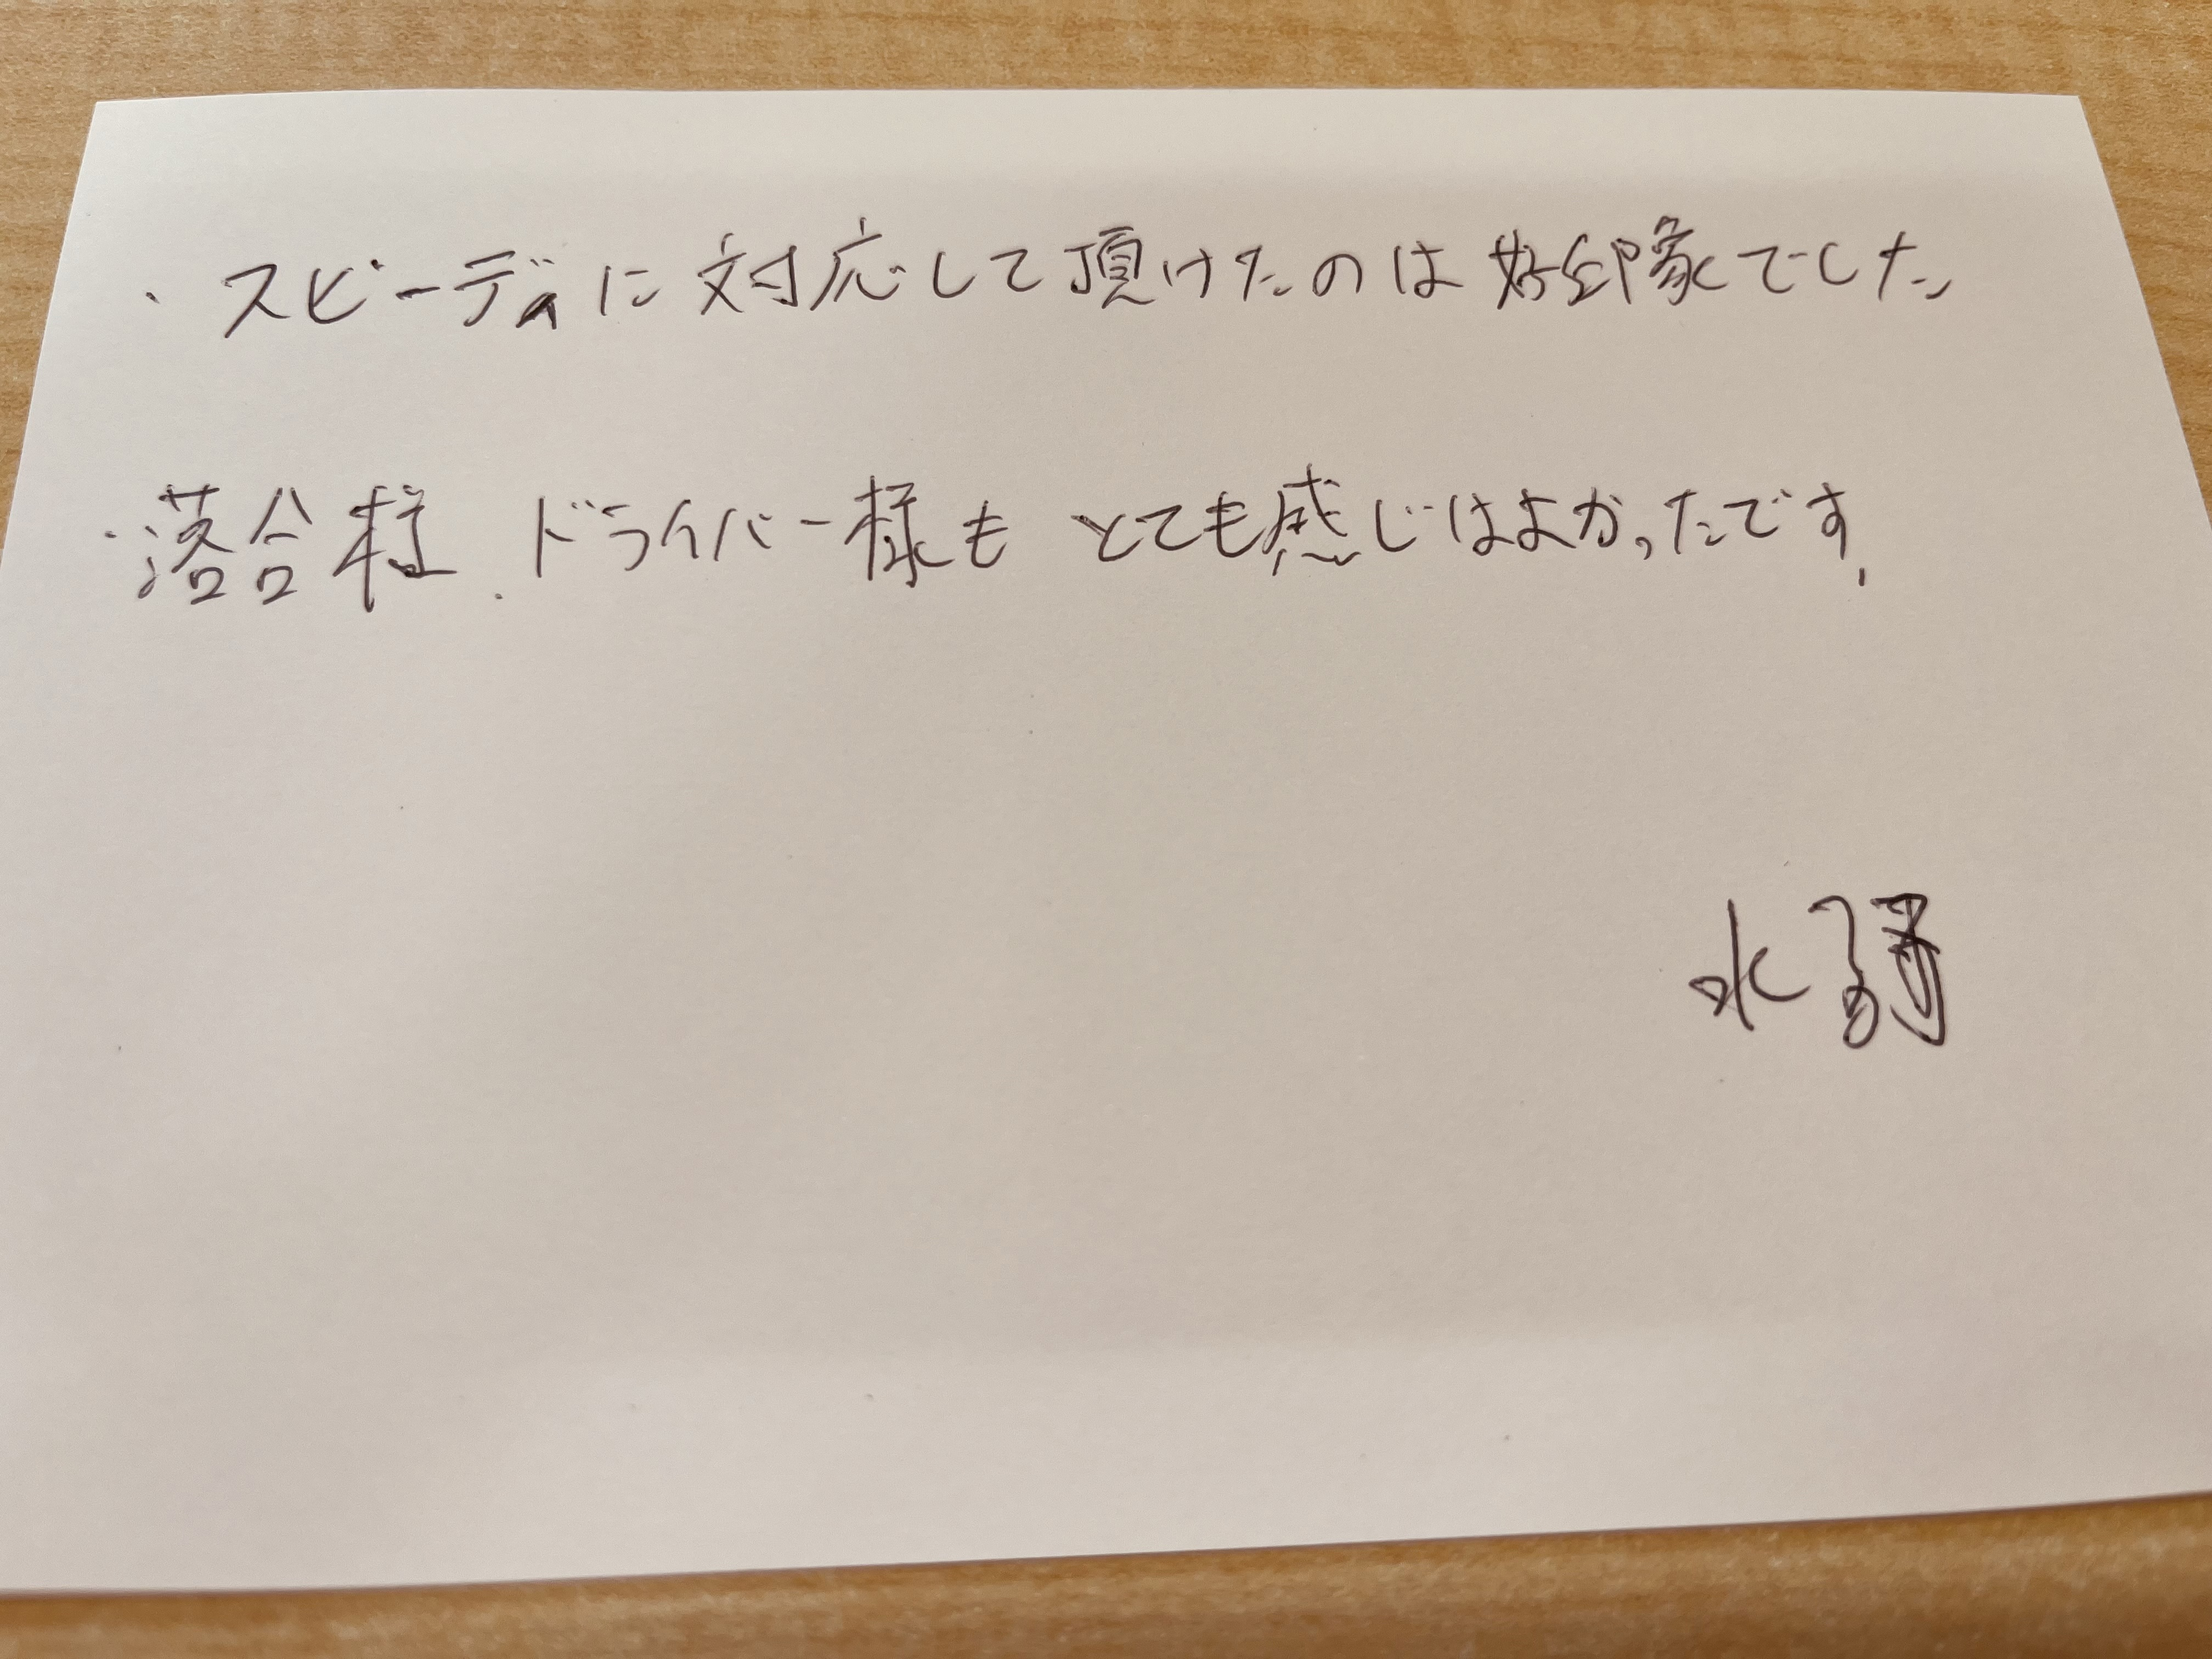 ・スピーディに対応して頂けたのは好印象でした
・落合様、ドライバー様もとても感じはよかったです、
水野